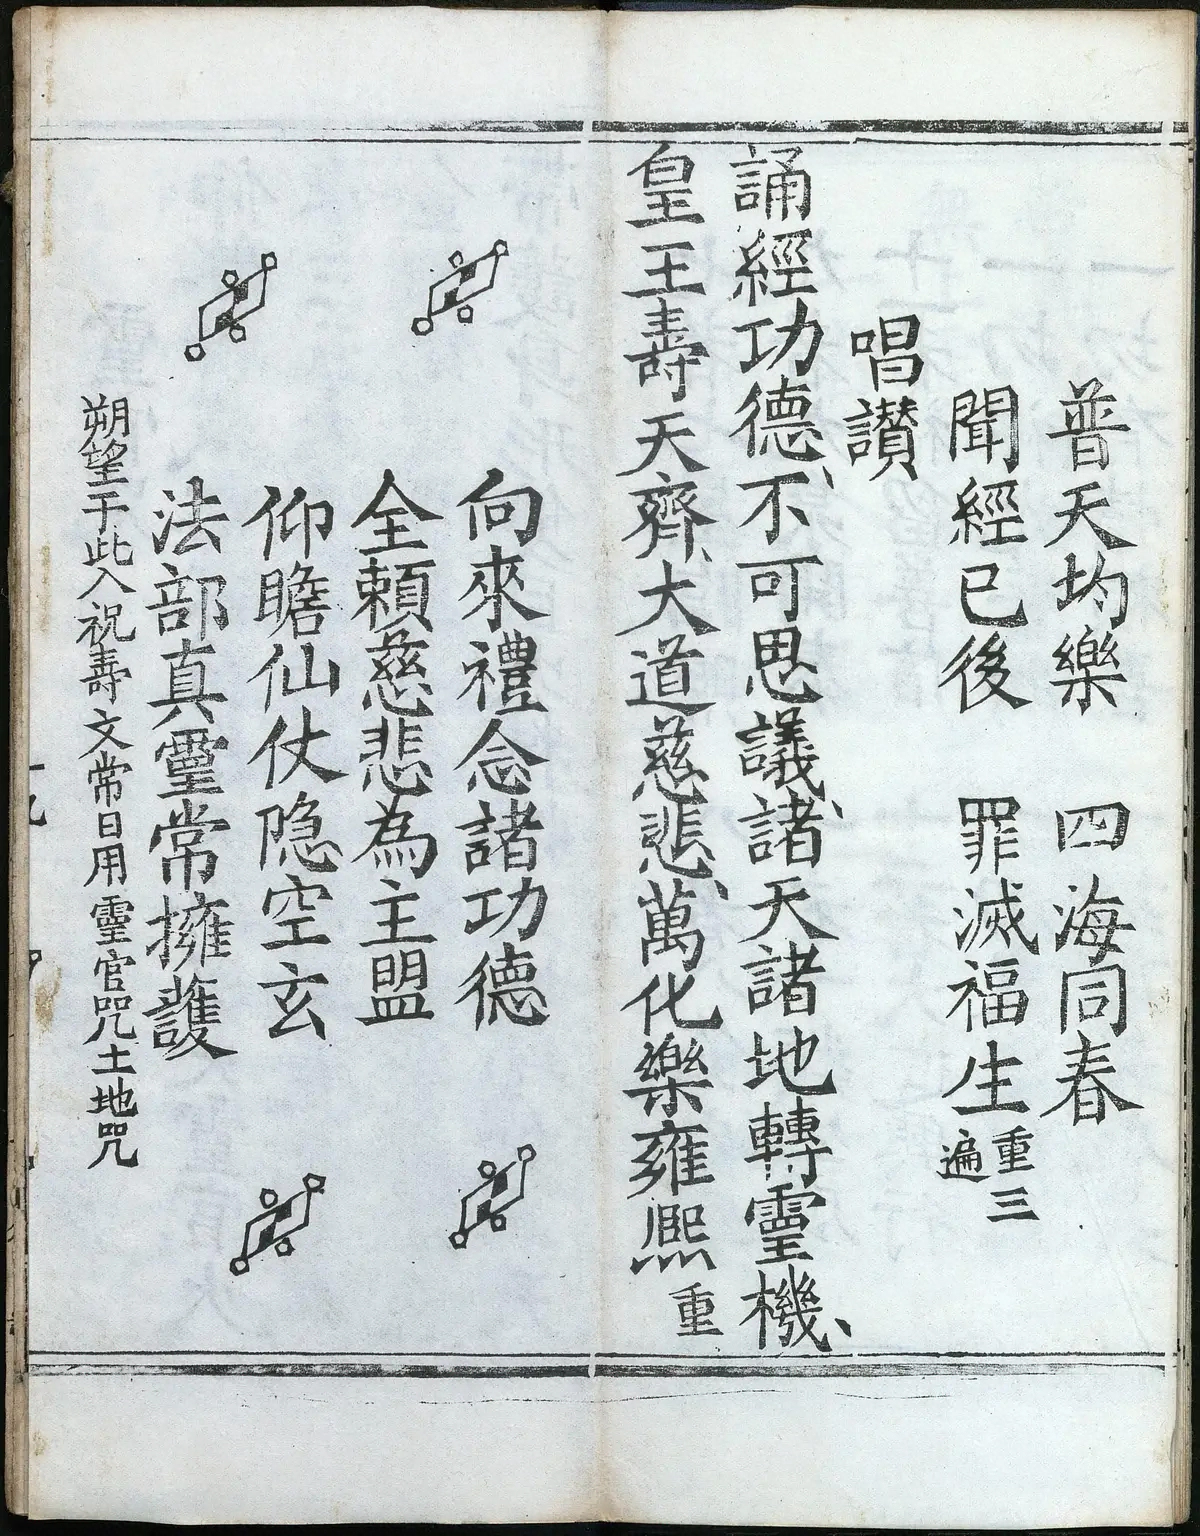 普天均樂　四海同春
聞經已後　罪滅福生重三遍
唱讃
誦經功德、不可思議、諸天諸地轉霊機、
皇王壽天齊、大道慈悲、萬化樂雍熈重
向來禮念諸功德
全頼慈悲為主盟
仰瞻仙仗隐空玄
法部真霊常擁護
朔望于此入祝壽文常日用霊官咒土地咒